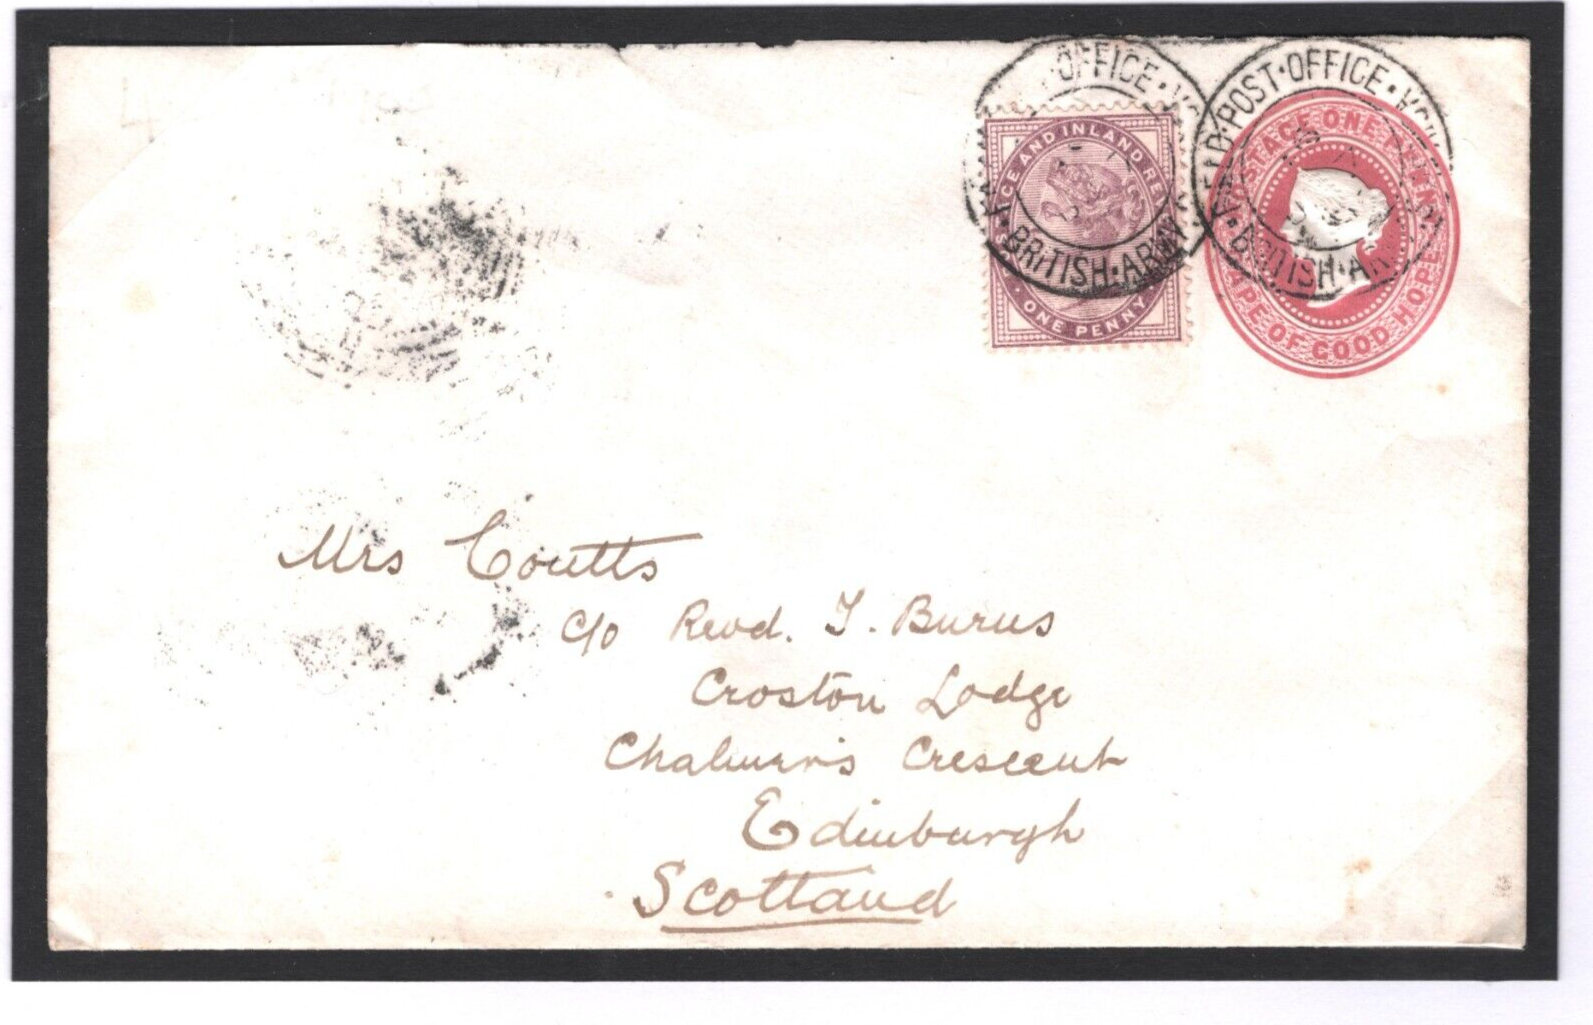 FIELD·POST·OFFICE·
·BRITISH·ARMY·
POSTAGE AND INLAND REVENUE
ONE PENNY
POSTAGE ONE PENNY
CAPE OF GOOD HOPE
Mrs Coutts
c/o Revd. J. Burns
Croston Lodge
Chalmers Crescent
Edinburgh
Scotland